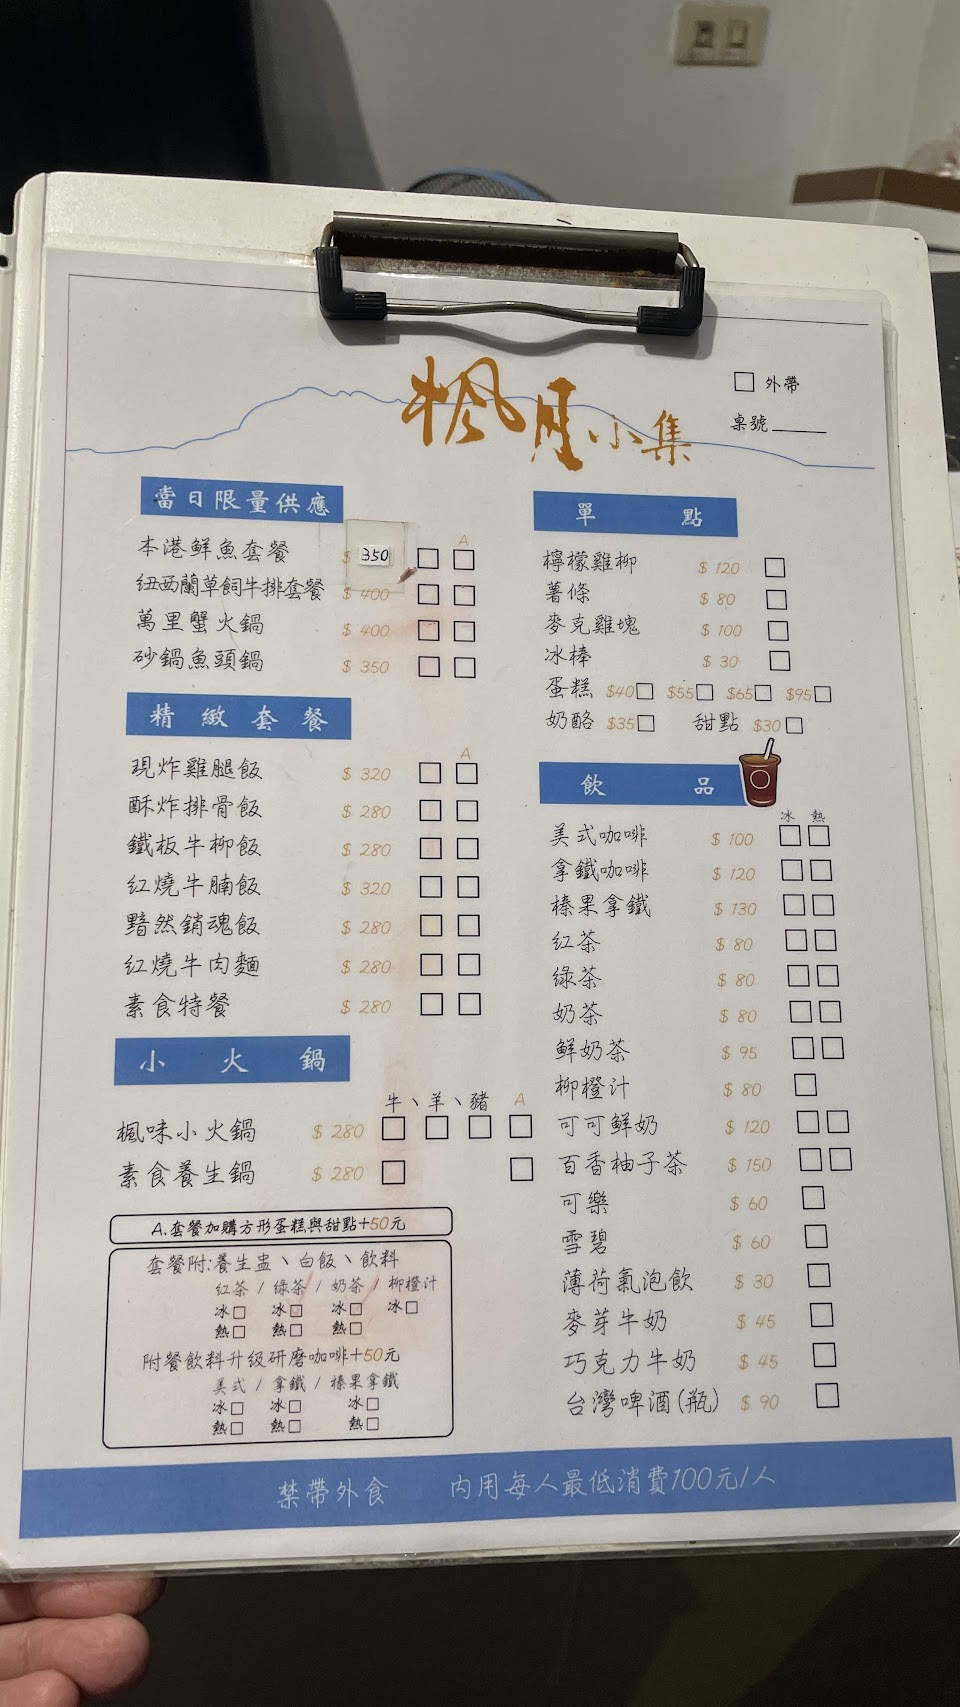 楓月小集
外帶
桌號
當日限量供應
A
本港鮮魚套餐 $ 350
紐西蘭草飼牛排套餐 $ 400
萬里蟹火鍋 $ 400
砂鍋魚頭鍋 $ 350
精緻套餐
A
現炸雞腿飯 $ 320
酥炸排骨飯 $ 280
鐵板牛柳飯 $ 280
紅燒牛腩飯 $ 320
黯然銷魂飯 $ 280
紅燒牛肉麵 $ 280
素食特餐 $ 280
小火鍋
牛、羊、豬 A
楓味小火鍋 $ 280
素食養生鍋 $ 280
A.套餐加購方形蛋糕與甜點+50元
套餐附:養生盅、白飯、飲料
紅茶 / 綠茶 / 奶茶 / 柳橙汁
冰 冰 冰 冰
熱 熱 熱
附餐飲料升級研磨咖啡+50元
美式 / 拿鐵 / 榛果拿鐵
冰 冰 冰
熱 熱 熱
單點
檸檬雞柳 $ 120
薯條 $ 80
麥克雞塊 $ 100
冰棒 $ 30
蛋糕 $40 $55 $65 $95
奶酪 $35 甜點 $30
飲品
冰 熱
美式咖啡 $ 100
拿鐵咖啡 $ 120
榛果拿鐵 $ 130
紅茶 $ 80
綠茶 $ 80
奶茶 $ 80
鮮奶茶 $ 95
柳橙汁 $ 80
可可鮮奶 $ 120
百香柚子茶 $ 150
可樂 $ 60
雪碧 $ 60
薄荷氣泡飲 $ 30
麥芽牛奶 $ 45
巧克力牛奶 $ 45
台灣啤酒(瓶) $ 90
禁帶外食 內用每人最低消費100元/人